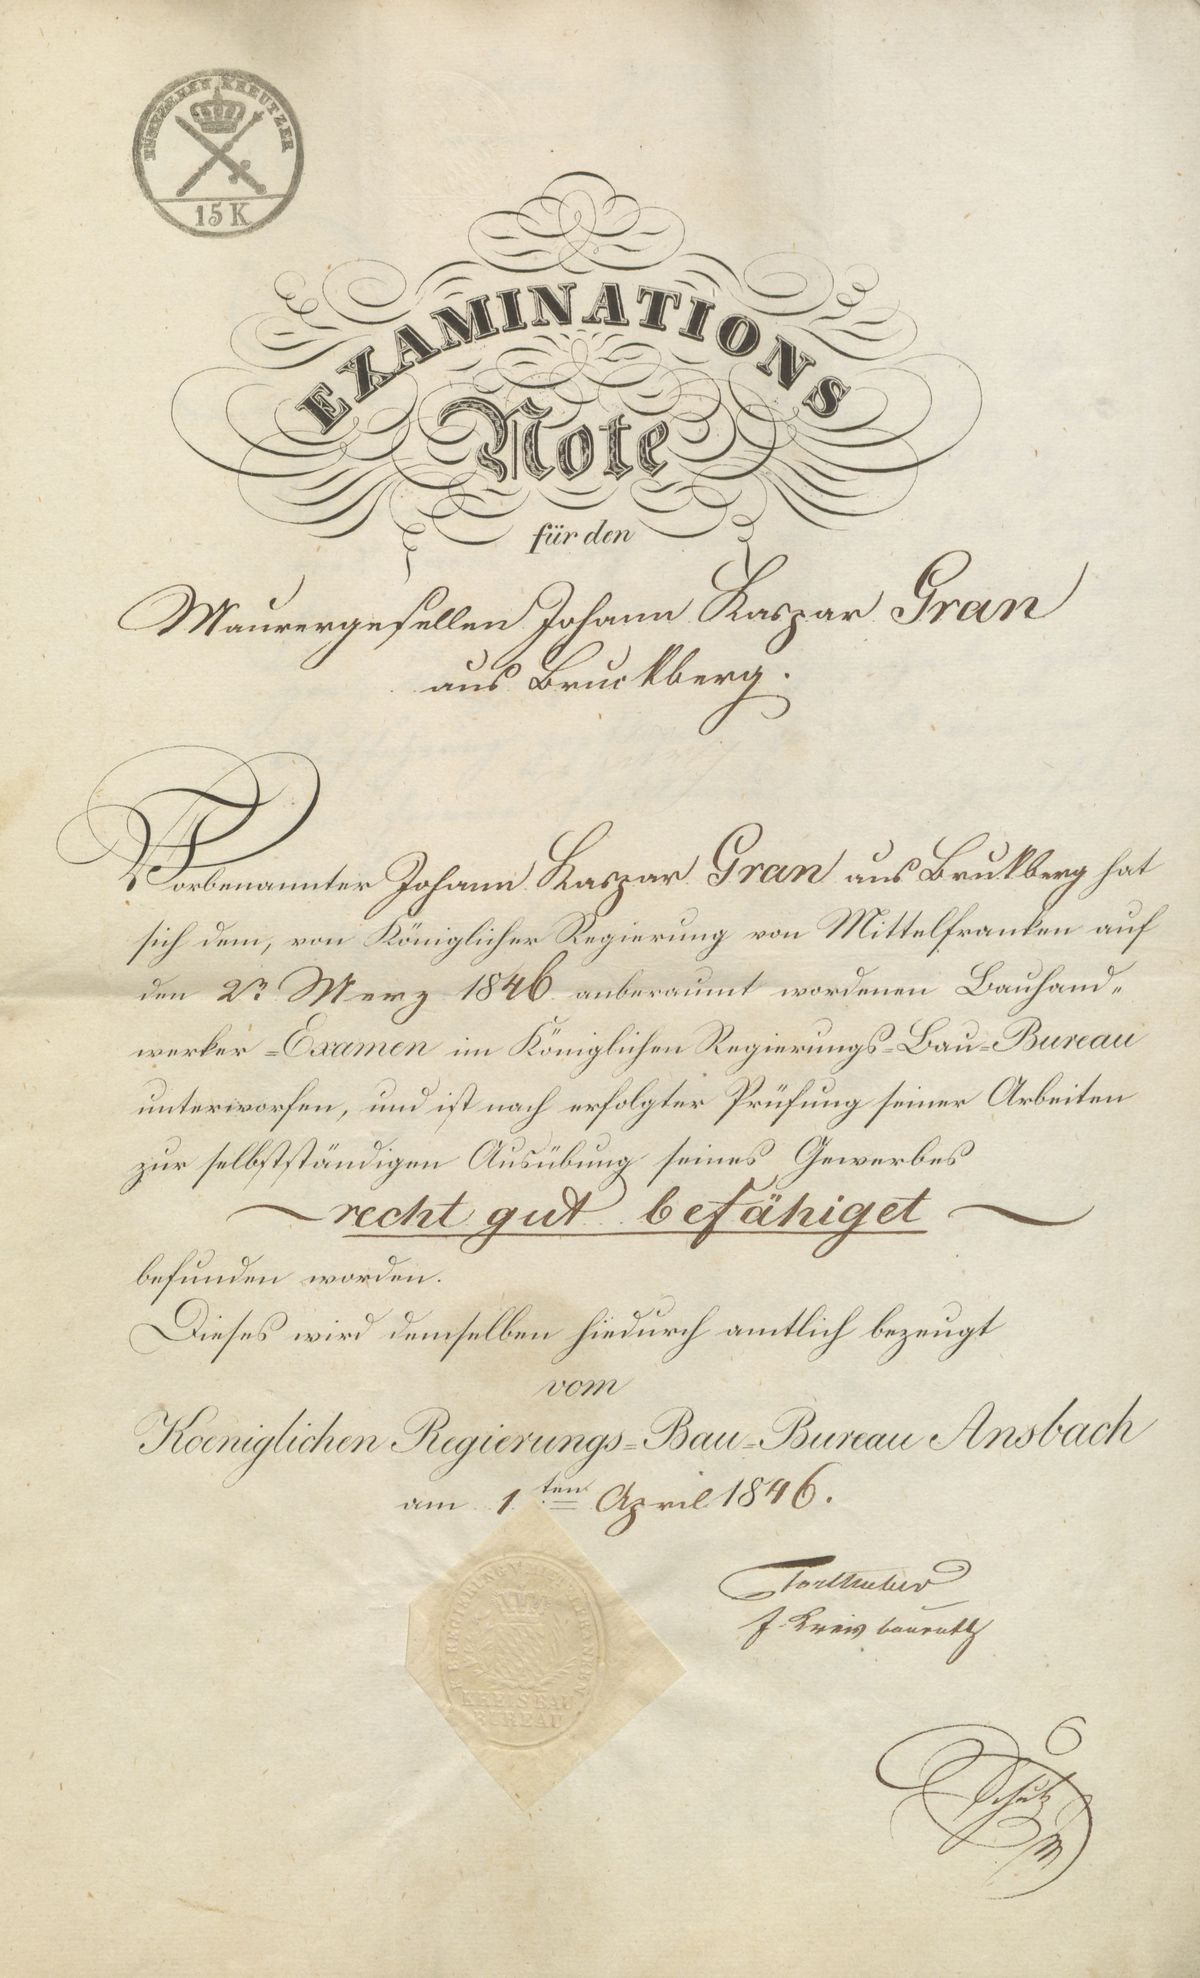 FÜNFZEHEN KREUTZER
15 K
EXAMINATIONS
Note
für den
Maurergesellen Johann Kaspar Gran
aus Bruckberg.
Vorbenannter Johann Kaspar Gran aus Brukberg hat
sich dem, von Königlicher Regierung von Mittelfranken auf
den 2n Merz 1846 anberaumt wordenen Bauhand=
werker=Examen im Königlichen Regierungs=Bau=Bureau
unterworfen, und ist nach erfolgter Prüfung seiner Arbeiten
zur selbstständigen Ausübung seines Gewerbes
recht gut befähiget
befunden worden.
Dieses wird demselben hiedurch amtlich bezeugt
vom
Koeniglichen Regierungs=Bau=Bureau Ansbach
am 1ten April 1846.
Kreisbaurath
KREISBAU
BUREAU
Schutz